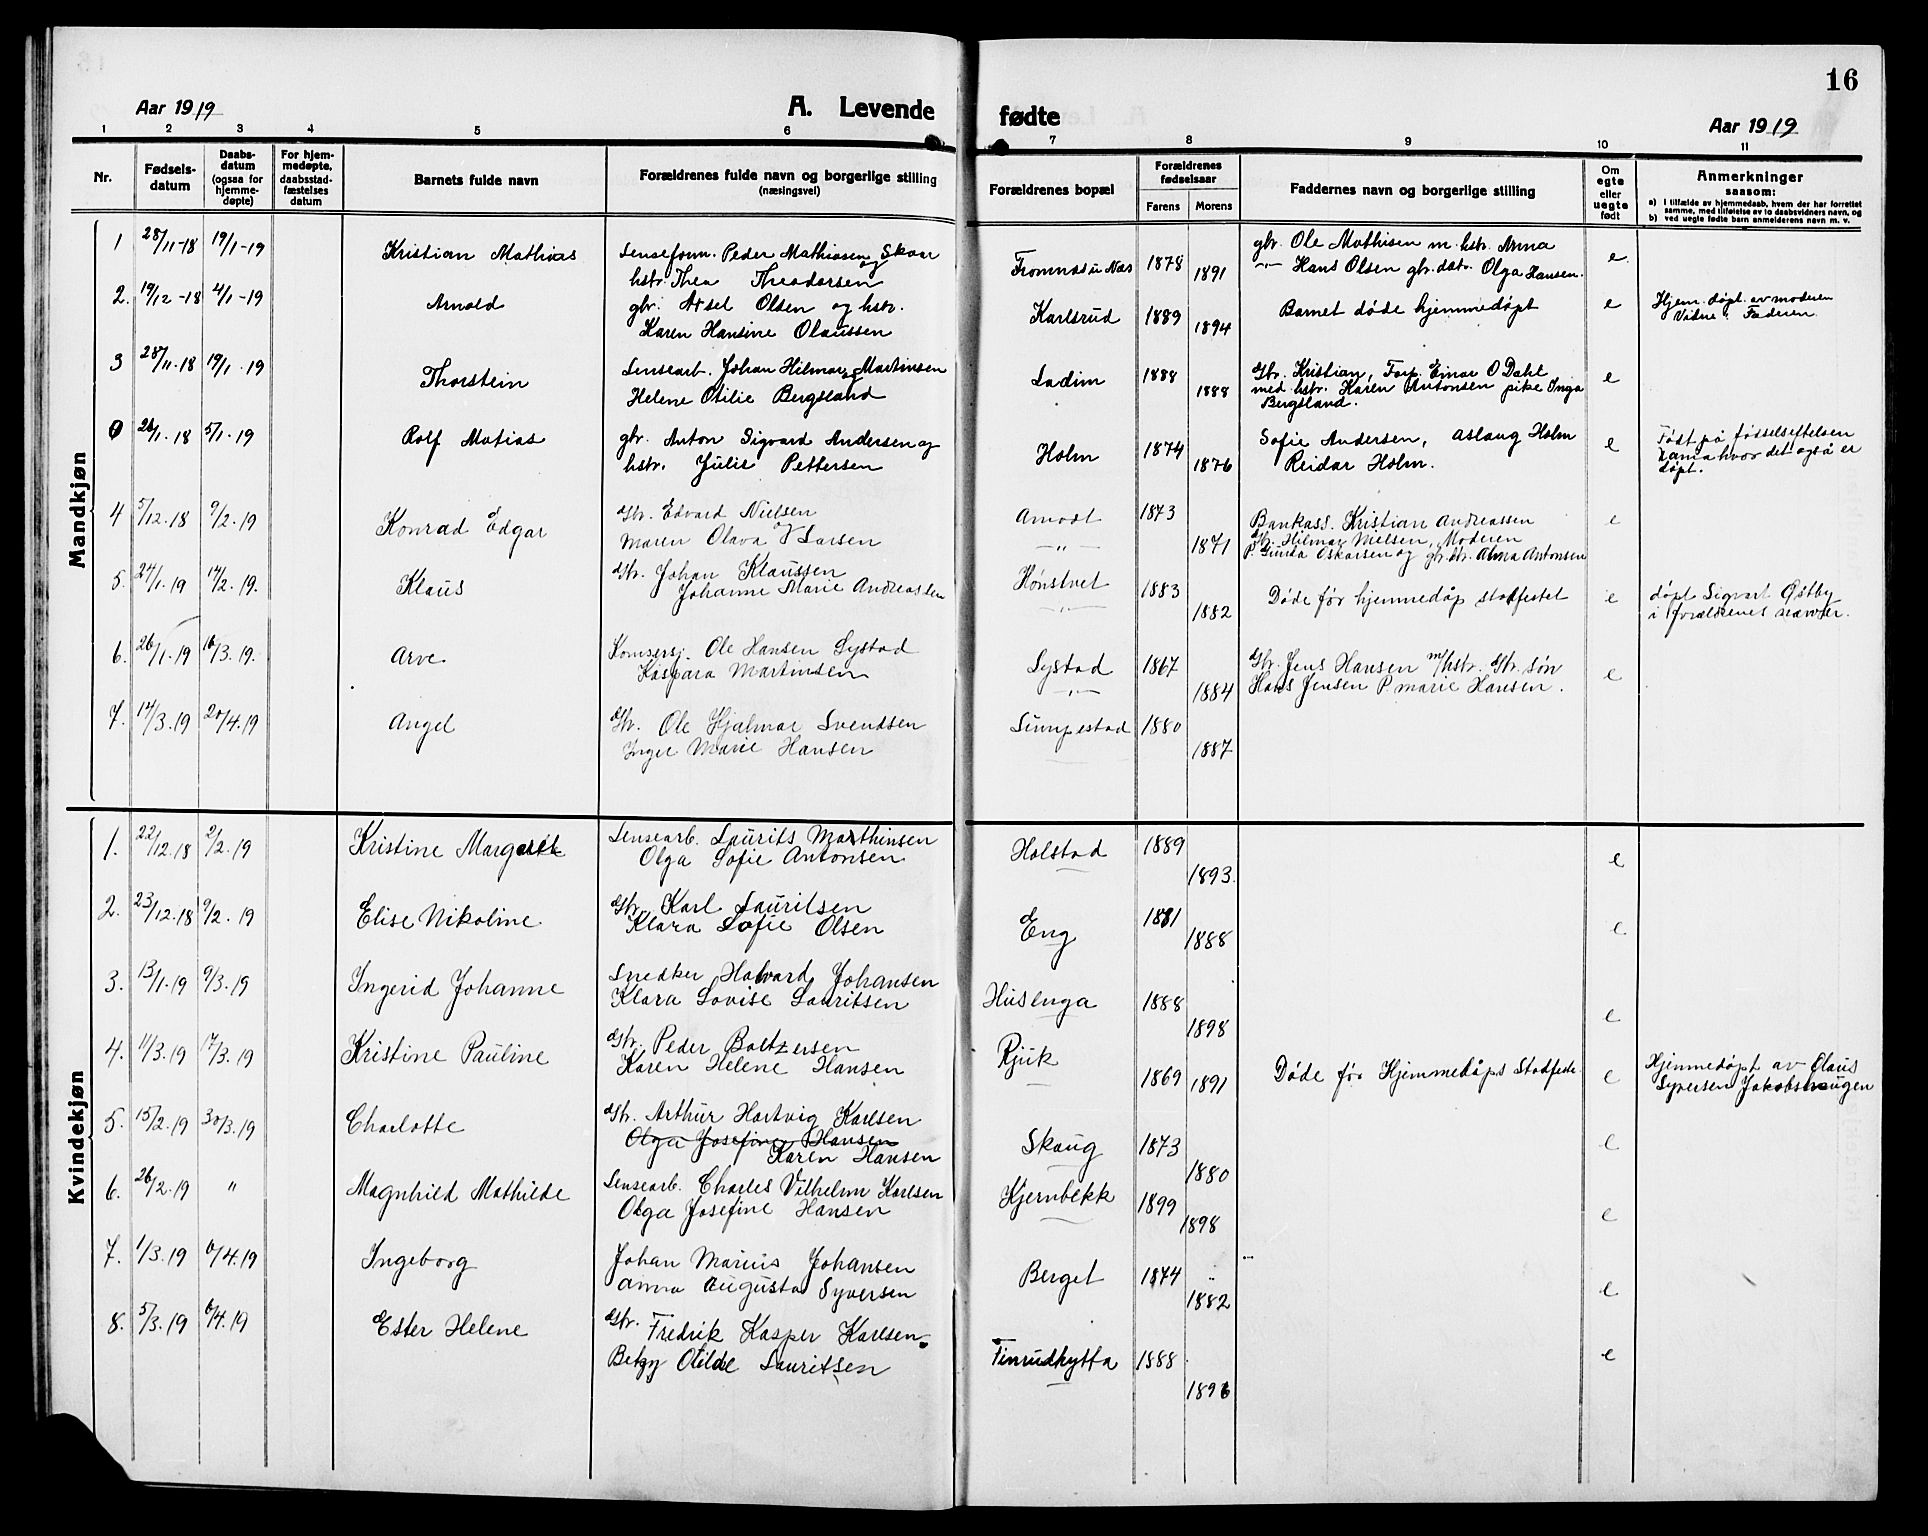 16
Aar 1919 A. Levende fødte Aar 1919
1 2 3 4 5 6 7 8 9 10 11
Nr. Fødsels-datum Daabs-datum (ogsaa for hjemme-døpte) For hjem-medøpte, daabsstad-fæstelses datum Barnets fulde navn Forældrenes fulde navn og borgerlige stilling (næringsvei) Forældrenes bopæl Forældrenes fødselsaar Farens Morens Faddernes navn og borgerlige stilling Om egte eller uegte født Anmerkninger saasom: a) I tilfælde av hjemmedaab, hvem der har forrettet samme, med tilføielse av to daabsvidners navn, og b) ved uegte fødte barn anmelderens navn m. v.
Mandkjøn
1 28/11-18 19/1-19 Kristian Mathias Lenseform. Peder Mathiasen Skaar og 1878 gbr. Ole Mathisen m. hstr. Anna e
hstr. Thea Theodorsen 1891 -"- Hans Olsen gbr. datr. Olga Hansen.
2. 19/12-18 4/1-19 Arnold gbr. Aksel Olsen og hstr. Karlsrud 1889 Barnet døde hjemmedøpt e Hjem. døpt av moderen
Karen Hansine Olaussen 1894 Vidne: Faderen
3 28/11-18 19/1-19 Thorstein Lensearb. Johan Hilmar Martinsen og Ladim 1888 Gbr. Kristian, Forp. Einar O Dahl e
Helene Otilie Bergsland 1888 med hstr. Karen Antonsen pike Inga
Bergsland.
0 5/1-19 Rolf Matias gbr. Anton Sigvard Andersen og Holm 1874 Sofie Andersen, Aslaug Holm e Født på fødselsstiftelsen
hstr. Julie Pettersen 1876 Reidar Holm. hvor det også er
døpt.
4 5/12-18 9/2-19 Konrad Edgar Gbr. Edvard Nielsen Amodt 1873 Bankass. Kristian Andreassen e
Maren Olava Larsen -"- 1871 Gbr. Hilmar Nielsen, Moderen
P. Gunda Oskarsen og gbr. str. Alma Antonsen
5. 24/1.19 14/2.19. Klaus Gbr. Johan Klaussen Hønstvet 1883 Døde før hjemmedåp stadfestet e døpt Sigvart Østby
Johanne Marie Andreassen -"- 1882 i forældrenes nærvær.
6. 26/1.19 16/3.19. Arve Ole Hansen Systad Systad 1867 Gbr. Jens Hansen m/hstr. Gbr. søn e
Kaspara Martinsen -"- 1884 Hans Jensen P. Marie Hansen.
7. 14/3.19 20/4.19 Angel Gbr. Ole Hjalmar Svendsen Sumpestad 1880
Inger Marie Hansen 1887
Kvindekjøn
1. 22/12.18 2/2.19 Kristine Margrete Lensearb. Laurits Marthinsen Holstad 1889 e
Olga Sofie Antonsen 1893.
2. 23/12.18 9/2.19 Elise Nikoline Gbr. Karl Lauritsen Eng 1881 e
Klara Sofie Olsen 1888
3. 13/1.19 9/3.19 Ingerid Johanne Snedker Halvard Johansen Husenga 1888 e
Klara Lovise Lauritsen 1898
4. 11/3.19 17/3.19 Kristine Pauline Gbr. Peder Baltzersen Rjuk 1869 Døde før Hjemmedåps Stadfeste. e Hjemmedøpt av Olaus
Karen Helene Hansen 1891 Syversen Jakobshaugen
5. 15/2.19 30/3.19 Charlotte Gbr. Arthur Hartvig Karlsen Skaug 1873 e
Olga Josefine Hansen
Karen Hansen 1880
6. 26/2.19 " Magnhild Mathilde Lensearb. Charles Vilhelm Karlsen Kjernbekk 1899 e
Olga Josefine Hansen 1898
7. 1/3.19 6/4.19 Ingeborg Johan Marius Johansen Berget 1874 e
Anna Augusta Syversen 1882
8. 5/3.19 6/4.19 Ester Helene Gbr. Fredrik Kasper Karlsen Finrudhytta 1888 e
Betzy Otilde Lauritsen 1896